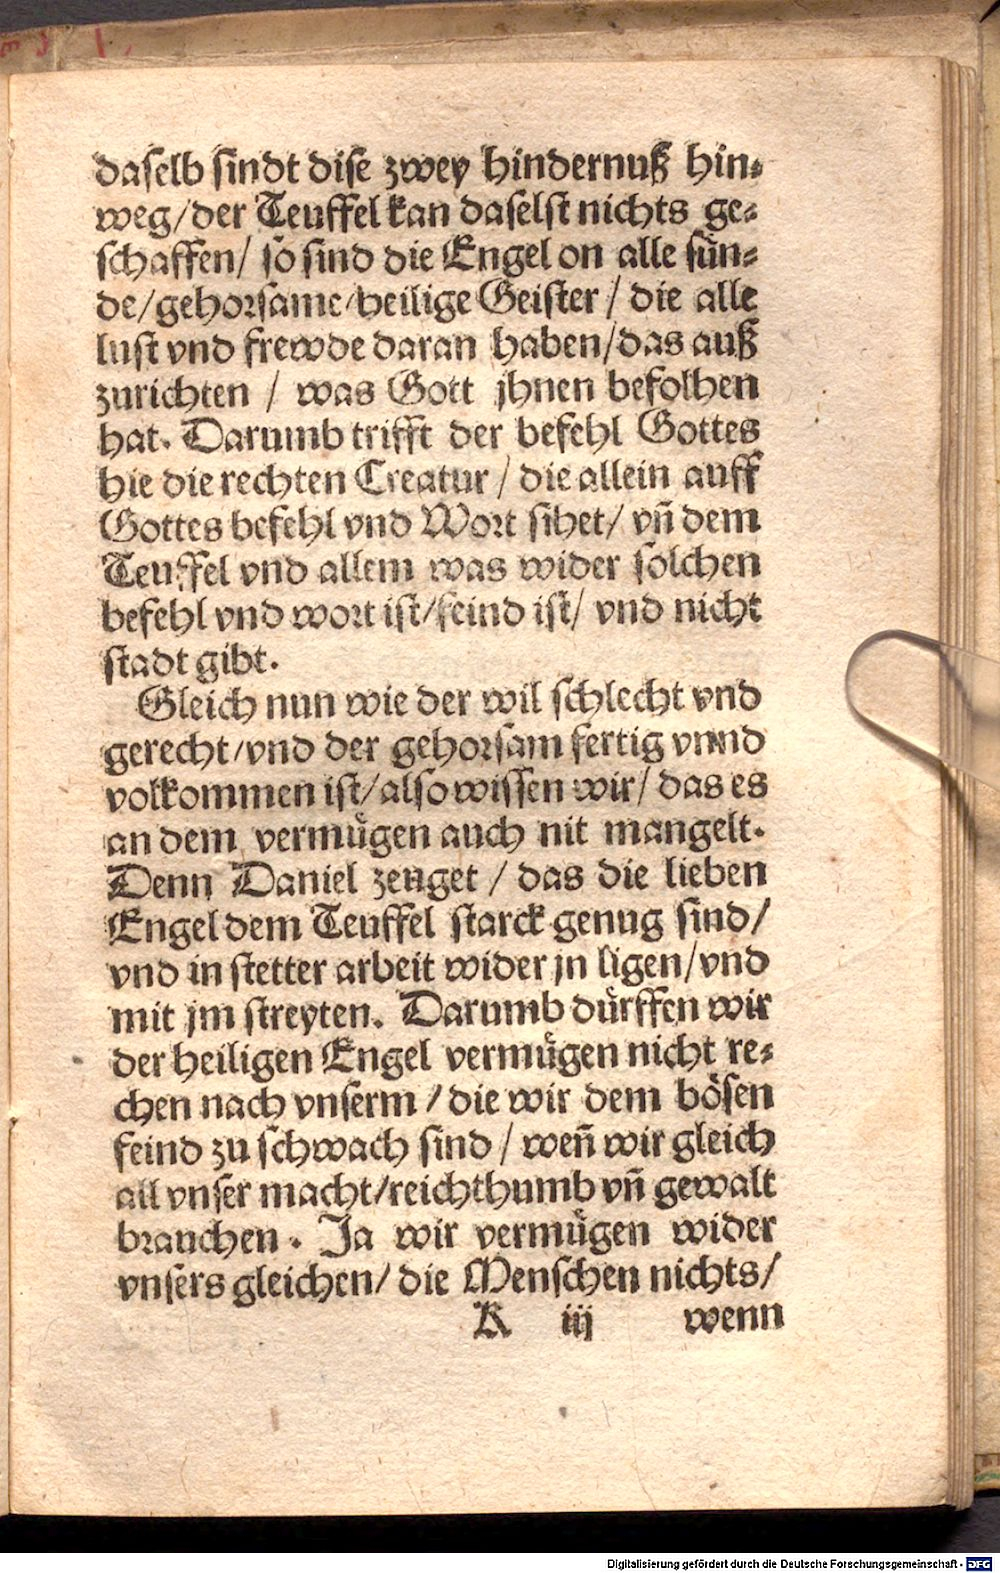 daselb sindt dise zwey hindernuß hin⸗
weg/der Teuffel kan daselst nichts ge⸗
schaffen/ so sind die Engel on alle sün⸗
de/gehorsame/heilige Geister / die alle
lust vnd frewde daran haben/das auß
zurichten / was Gott jhnen befolhen
hat. Darumb trifft der befehl Gottes
hie die rechten Creatur / die allein auff
Gottes befehl vnd Wort sihet/ vñ dem
Teuffel vnd allem was wider solchen
befehl vnd wort ist/feind ist/ vnd nicht
stadt gibt.
Gleich nun wie der wil schlecht vnd
gerecht/vnd der gehorsam fertig vnnd
volkommen ist/also wissen wir/ das es
an dem vermügen auch nit mangelt.
Denn Daniel zeuget / das die lieben
Engel dem Teuffel starck genug sind/
vnd in stetter arbeit wider jn ligen/vnd
mit jm streyten. Darumb dürffen wir
der heiligen Engel vermügen nicht re⸗
chen nach vnserm / die wir dem bösen
feind zu schwach sind / weñ wir gleich
all vnser macht/reichthumb vñ gewalt
brauchen. Ja wir vermügen wider
vnsers gleichen/ die Menschen nichts/
K iij wenn
Digitalisierung gefördert durch die Deutsche Forschungsgemeinschaft - DFG